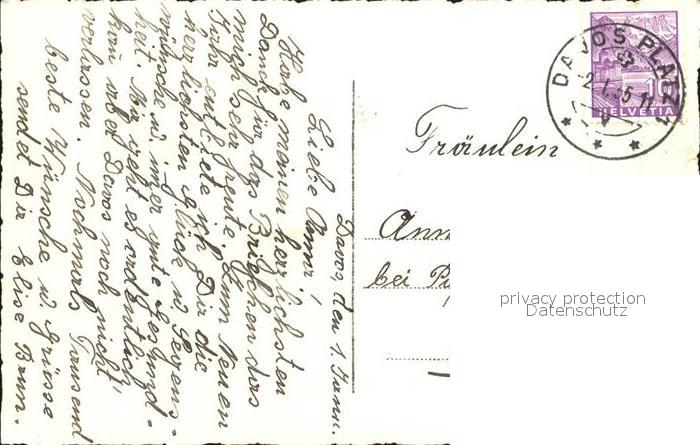 Davos, den 1. Jann.
Liebe Anna!
Habe meinen herzlichsten
Dank für das Briefchen das
mich sehr freute. Zum Neuen
Jahr entbiete ich Dir die
herzlichsten Glück u. Segens-
wünsche u. imer gute Gesund-
heit. Mir geht es ordentlich
kañ aber Davos noch nicht
verlassen. Nochmals Tausend
beste Wünsche u. Grüsse
sendet Dir Elise
Fräulein
Ann
bei
DAVOS PLATZ
HELVETIA
privacy protection
Datenschutz